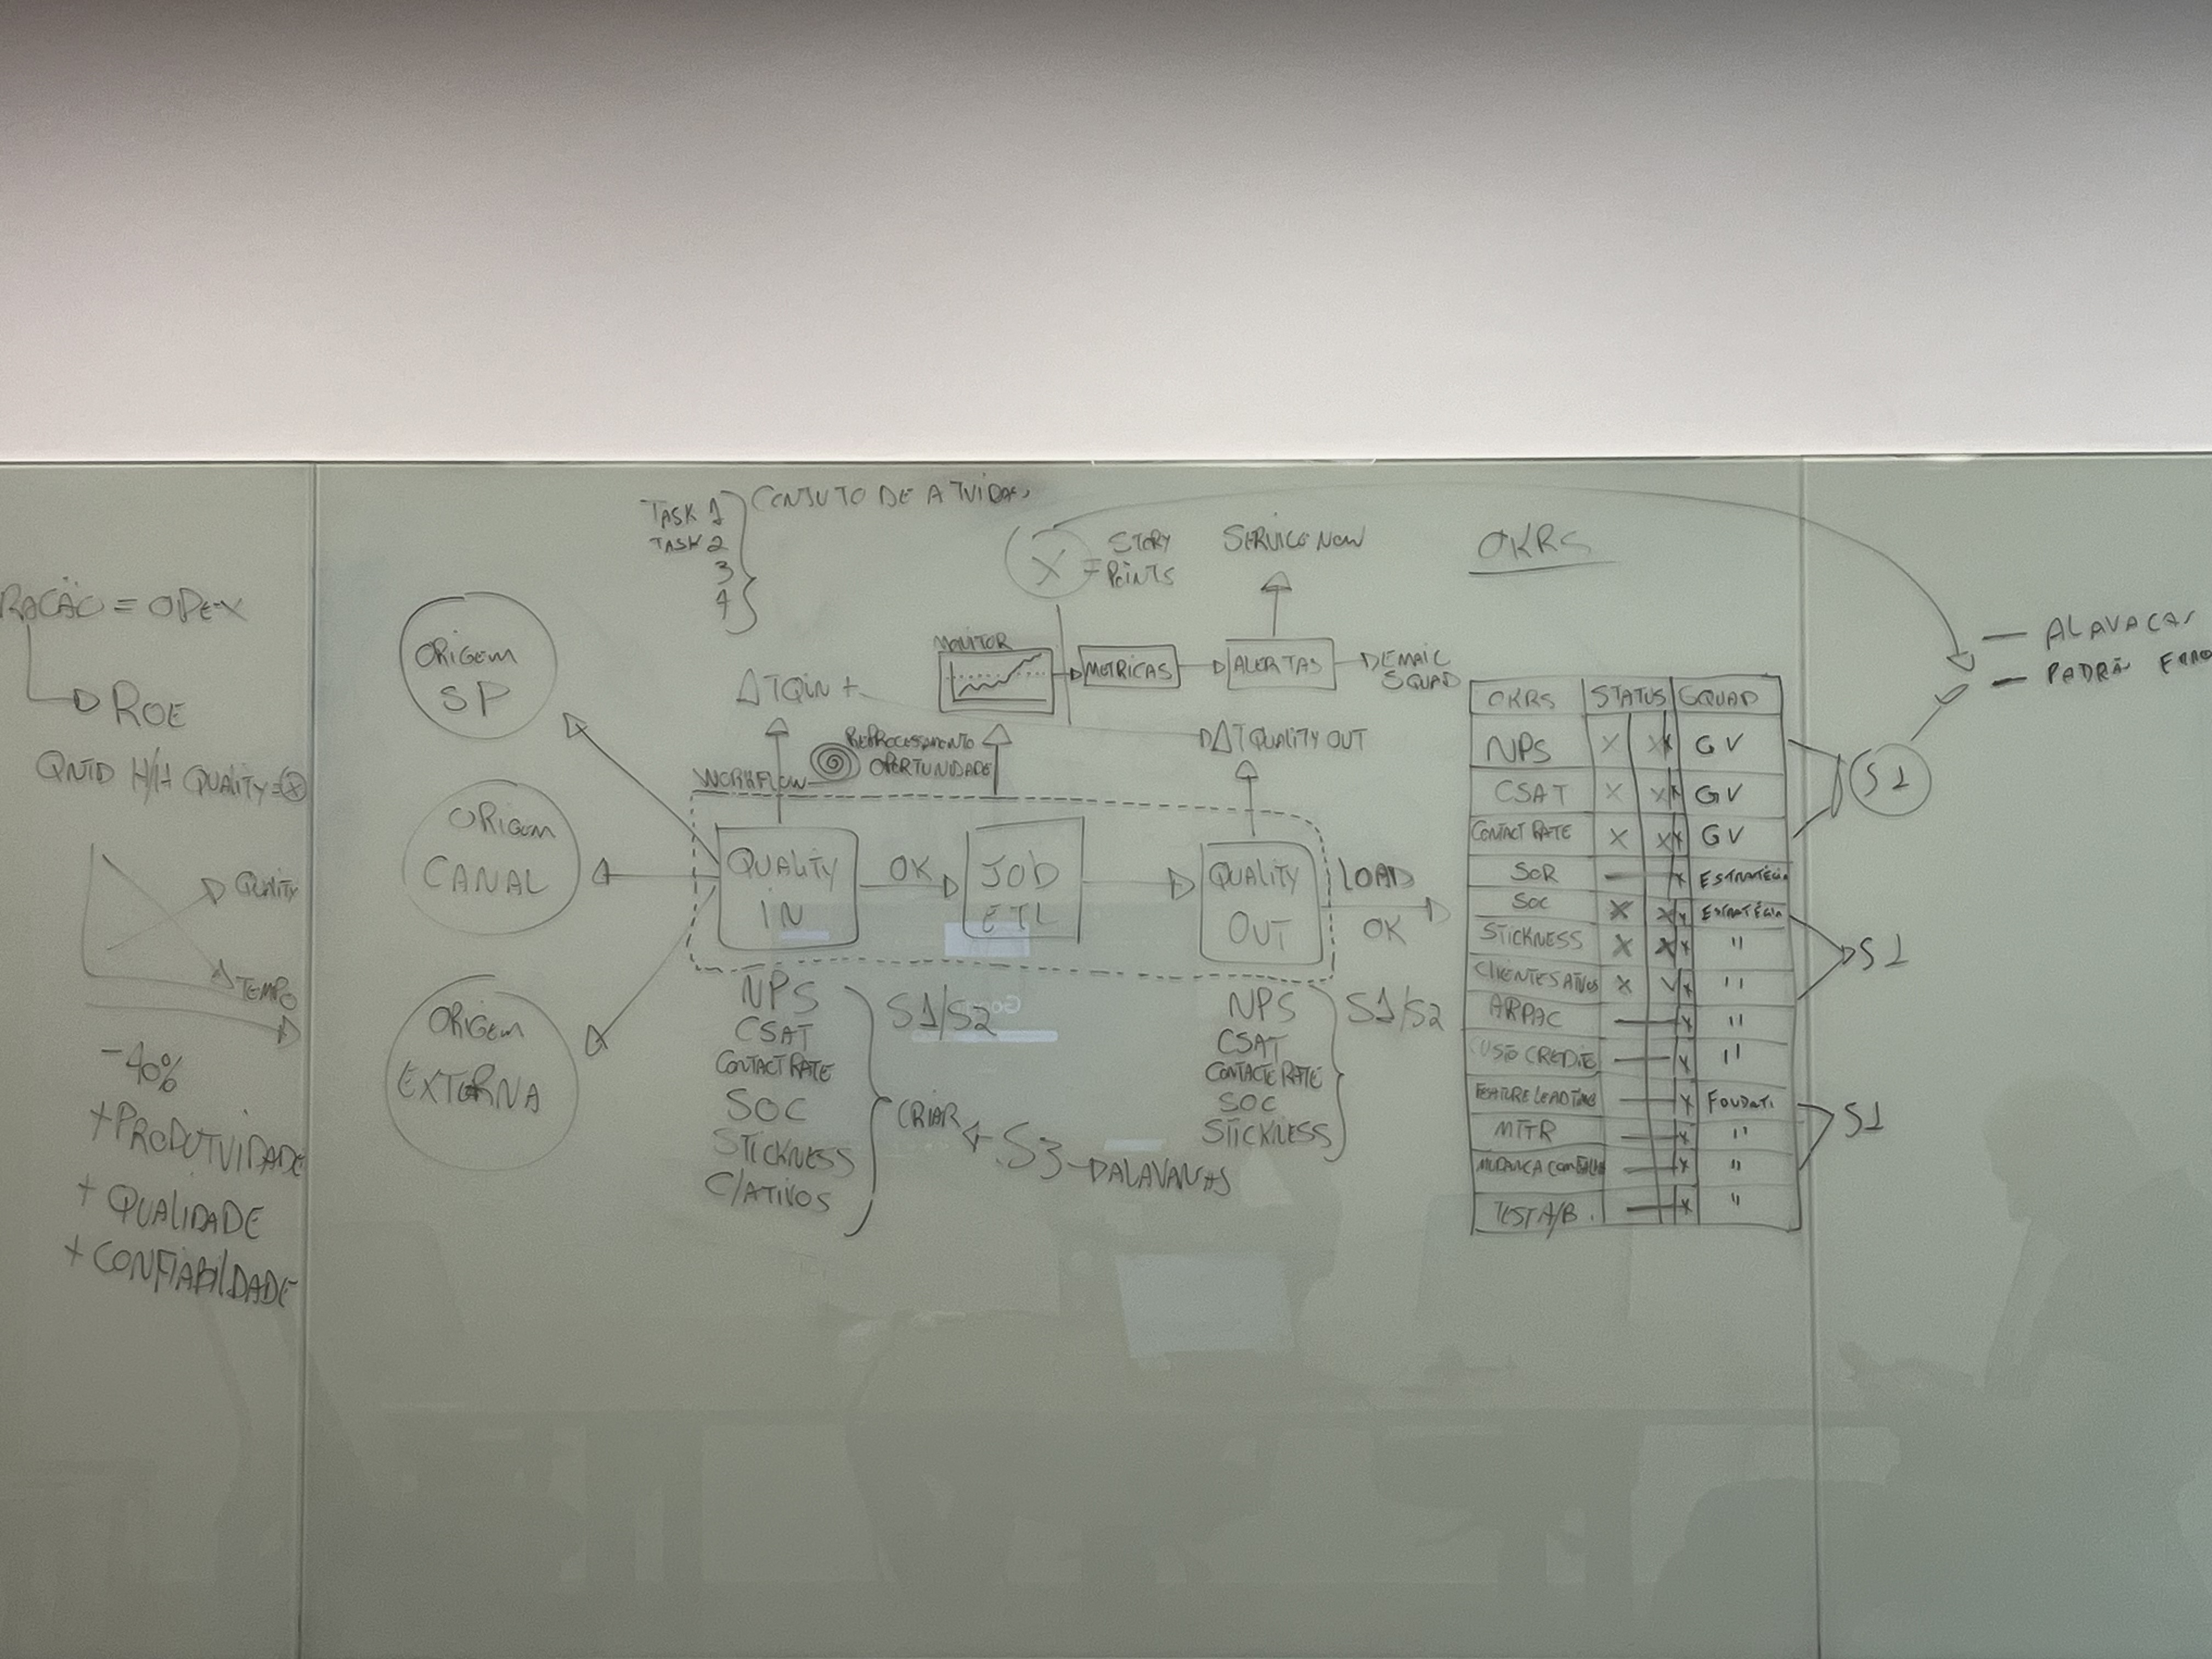 = OPEX
ROE
QNTD H/H QUALITY = X
QUALITY
TEMPO
-40%
+ PRODUTVIDADE
+ QUALIDADE
+ CONFIABILDADE
TASK 1
TASK 2
3
4
CONJUTO DE ATVIDAS
ORIGEM
SP
ORIGEM
CANAL
ORIGEM
EXTERNA
X = STORY
POINTS
SERVICE NOW
MONITOR
METRICAS
ALERTAS
EMAIL
SQUAD
ΔTQIN +
ΔT QUALITY OUT
REPROCESSAMENTO
OPORTUNIDADE
WORKFLOW
QUALITY
IN
OK
JOB
ETL
QUALITY
OUT
LOAD
OK
NPS
CSAT
CONTACT RATE
SOC
STICKNESS
C/ATIVOS
S1/S2
CRIAR
S3
ALAVANCAS
NPS
CSAT
CONTACTE RATE
SOC
STICKNESS
S1/S2
OKRS
OKRS STATUS SQUAD
NPS X X X GV
CSAT X X X GV
CONTACT RATE X X X GV
SOR — X ESTRATÉGIA
SOC X X X ESTRATÉGIA
STICKNESS X X X "
CLIENTES ATIVOS X V X "
ARPAC — X "
CUSTO CREDITO — X "
FEATURE LEAD TIME — X FOUDATI
MTTR — X "
MUDANCA COM FALHA — X "
TEST A/B — X "
S1
S1
S1
— ALAVACAS
— PADRÃO ERRO